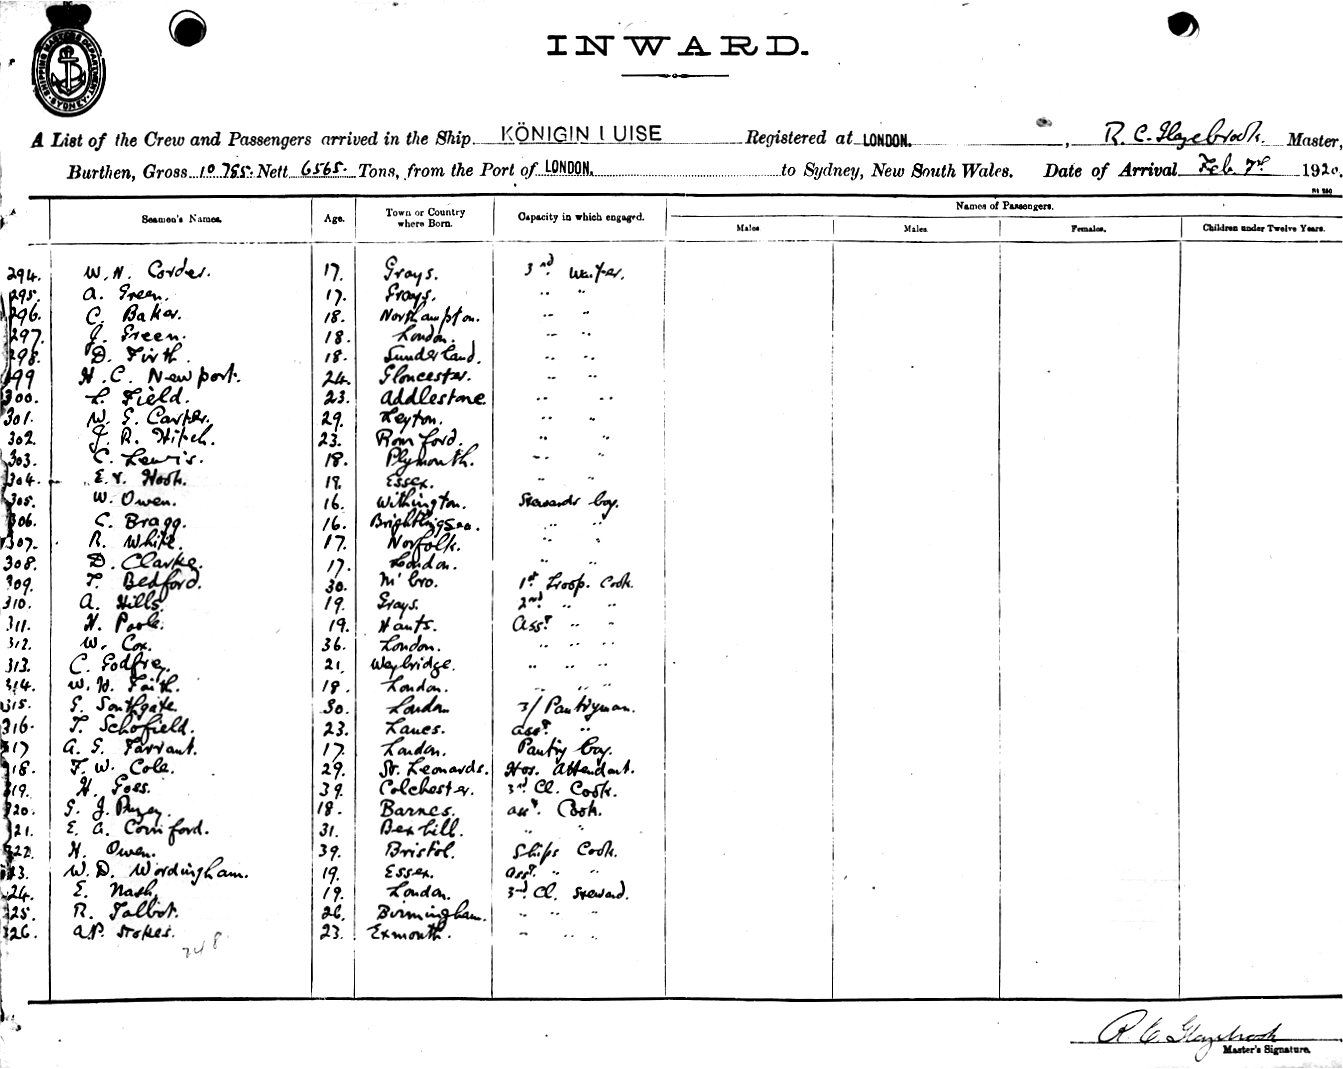 SHIPPING MASTERS DEPARTMENT SYDNEY
INWARD.
A List of the Crew and Passengers arrived in the Ship KÖNIGIN LUISE Registered at LONDON. , R. C. Glazebrook. Master,
Burthen, Gross 10 785. Nett 6565. Tons, from the Port of LONDON. to Sydney, New South Wales. Date of Arrival Feb. 7th 1920.
Names of Passengers.
Seamen's Names. Age. Town or Country where Born. Capacity in which engaged. Males Males Females. Children under Twelve Years.
294. W. H. Corder. 17. Grays. 3rd Waiter.
295. A. Green. 17. Grays. " "
296. C. Baker. 18. Northampton. " "
297. J. Green. 18. London. " "
298. D. Firth. 18. Sunderland. " "
299 H. C. Newport. 24. Gloucester. " "
300. L. Field. 23. Addlestone. " "
301. W. G. Carter. 29. Leyton. " "
302. J. R. Hitch. 23. Romford. " "
303. C. Lewis. 18. Plymouth. " "
304. E. V. Hook. 19. Essex. " "
305. W. Owen. 16. Withington. Stewards boy.
306. C. Bragg. 16. Brightlingsea. " "
307. R. White. 17. Norfolk. " "
308. D. Clarke. 17. London. " "
309. T. Bedford. 30. M'bro. 1st Troop. Cook.
310. A. Hills. 19. Grays. 2nd " "
311. H. Poole. 19. Hants. Asst. " "
312. W. Cox. 36. London. " " "
313. C. Godfrey. 21. Weybridge. " " "
314. W. H. Faith. 18. London. " " "
315. G. Southgate. 30. London 3/ Pantryman.
316. T. Schofield. 23. Lancs. asst. "
317 A. G. Tarrant. 17. London. Pantry boy.
318. F. W. Cole. 29. St. Leonards. Hos. Attendant.
319. H. Goes. 39. Colchester. 3rd Cl. Cook.
320. G. J. 18. Barnes. asst. Cook.
321. E. A. Corniford. 31. Bexhill. " "
322. H. Owen. 39. Bristol. Ships Cook.
323. W. D. Wordingham. 19. Essex. asst. " "
324. E. Nash. 19. London. 3rd Cl. Steward.
325. R. Talbot. 26. Birmingham. " " "
326. A. P. Stokes. 23. Exmouth. " " "
248
R. C. Glazebrook
Master's Signature.